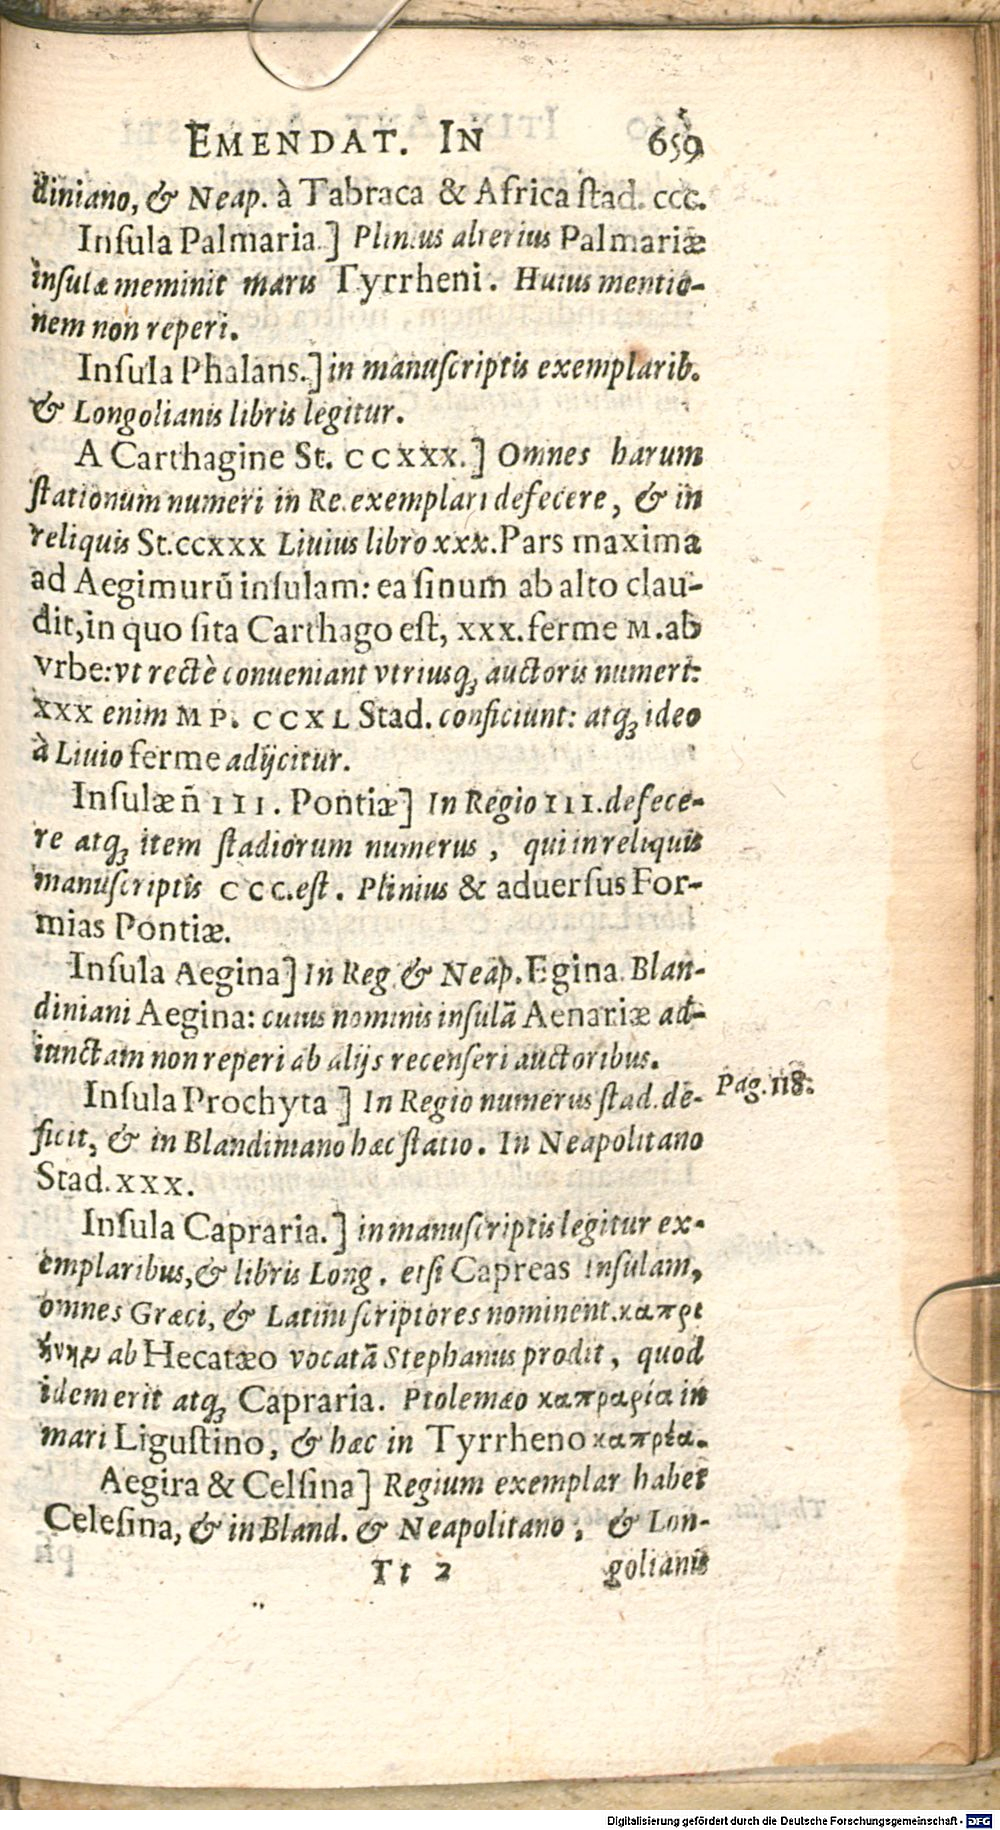 EMENDAT. IN 659
diniano, & Neap. à Tabraca & Africa ſtad. ccc.
Inſula Palmaria.] Plinius alterius Palmariæ
inſulæ meminit maris Tyrrheni. Huius mentio-
nem non reperi.
Inſula Phalans.] in manuſcriptis exemplarib.
& Longolianis libris legitur.
A Carthagine St. CCXXX.] Omnes harum
ſtationum numeri in Re. exemplari defecere, & in
reliquis St. ccxxx Liuius libro xxx. Pars maxima
ad Aegimurū inſulam: ea ſinum ab alto clau-
dit, in quo ſita Carthago eſt, xxx. ferme M. ab
vrbe: vt rectè conueniant vtriusq; auctoris numeri:
XXX enim MP. CCXL Stad. conficiunt: atq; ideo
à Liuio ferme adijcitur.
Inſulæ ñ III. Pontiæ] In Regio III. defece-
re atq; item ſtadiorum numerus, qui in reliquis
manuſcriptis CCC. eſt. Plinius & aduerſus For-
mias Pontiæ.
Inſula Aegina] In Reg. & Neap. Egina. Blan-
diniani Aegina: cuius nominis inſulā Aenariæ ad-
iunctam non reperi ab alijs recenſeri auctoribus.
Inſula Prochyta] In Regio numerus ſtad. de-
Pag. 118.
ficit, & in Blandiniano hæc ſtatio. In Neapolitano
Stad. XXX.
Inſula Capraria.] in manuſcriptis legitur ex-
emplaribus, & libris Long. etſi Capreas inſulam,
omnes Græci, & Latini ſcriptores nominent. καπρι
ήνην ab Hecatæo vocatā Stephanus prodit, quod
idem erit atq; Capraria. Ptolemæo καπραρία in
mari Liguſtino, & hæc in Tyrrheno καπρέα.
Aegira & Celſina] Regium exemplar habet
Celeſina, & in Bland. & Neapolitano; & Lon-
Tt 2 golianis
Digitalisierung gefördert durch die Deutsche Forschungsgemeinschaft - DFG